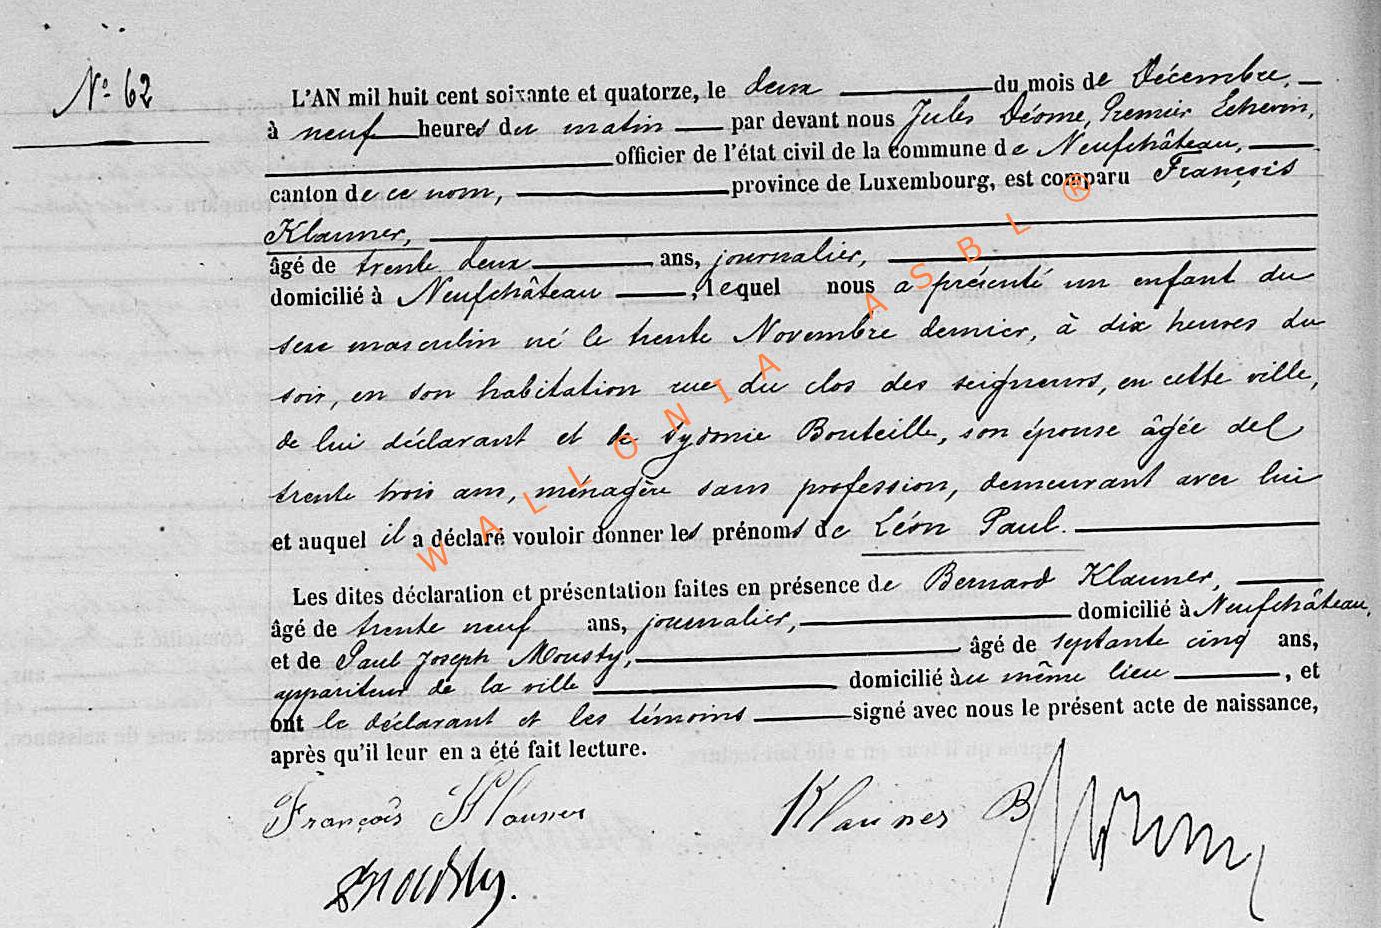 N° 62
L'AN mil huit cent soixante et quatorze, le deux du mois de Décembre,
à neuf heures du matin par devant nous Jules Déome, Premier Echevin,
officier de l'état civil de la commune de Neufchâteau,
canton de ce nom, province de Luxembourg, est comparu François
Klauner,
âgé de trente deux ans, journalier,
domicilié à Neufchâteau, lequel nous a présenté un enfant du
sexe masculin né le trente Novembre dernier, à dix heures du
soir, en son habitation rue du clos des seigneurs, en cette ville,
de lui déclarant et de Sydonie Bouteille, son épouse âgée de
trente trois ans, ménagère sans profession, demeurant avec lui
et auquel il a déclaré vouloir donner les prénoms de Léon Paul.
Les dites déclaration et présentation faites en présence de Bernard Klauner,
âgé de trente neuf ans, journalier, domicilié à Neufchâteau,
et de Paul Joseph Mousty, âgé de septante cinq ans,
appariteur de la ville domicilié au même lieu, et
ont le déclarant et les témoins signé avec nous le présent acte de naissance,
après qu'il leur en a été fait lecture.
François Klauner Klauner B
Mousty.
WALLONIA ASBL ®